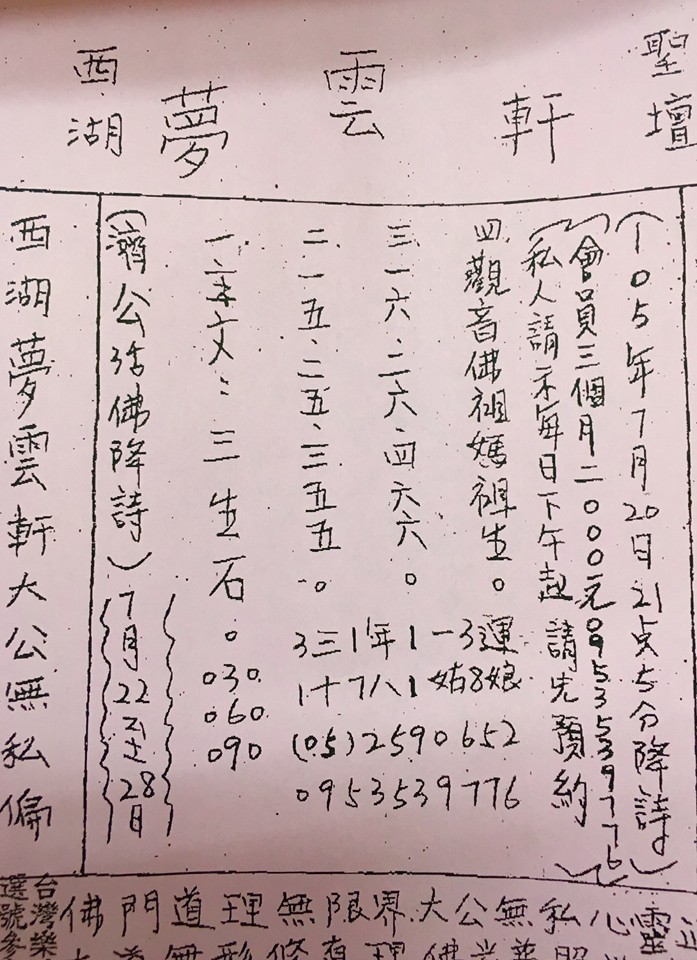 聖壇
軒
雲
夢
西湖
(105年7月20日21点5分降詩)
(會員三個月二000元0953539776)
私人請示每日下午起請先預約
四.觀音佛祖媽祖生。
三.一六.二六.四六六。
二.一五.二五.三五五。
一.主文:三生石。
030
060
090
3三1年1一3運
1十7八1姑8娘
(05)2590652
0953539776
(濟公活佛降詩)
7月22至28日
西湖夢雲軒大公無私偏
佛門道理無限界大公無私心靈正
台灣樂
選號參